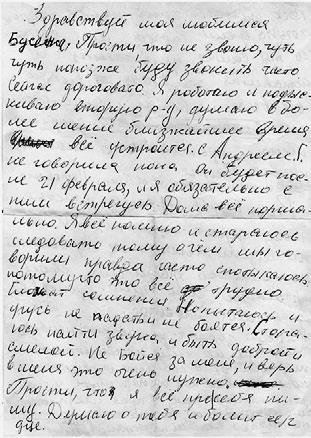 Здравствуй моя любимая
Бусечка, Прости что не звоню, чуть
чуть попозже буду звонить часто
сейчас дороговато. Я работаю и подыс-
киваю вторую р-у, думаю в бо-
лее менее ближайшее время
всё устроится. С Андреем Г.
не говорила пока. Он будет пос-
ле 21 февраля, и я обязательно с
ним встречусь. Дома всё норма-
льно. Я всё помню и стараюсь
следовать тому о чём мы го-
ворили правда часто спотыкаюсь,
потому что это всё трудно,
сомнения Попытаюсь и
не падать и не бояться. Стара-
юсь найти и быть доброй и
смелой. Не бойся за меня, и верь
в меня это очень нужно.
Прости, что я всё про себя пи-
шу. Думаю о тебя и болит сер-
дце.